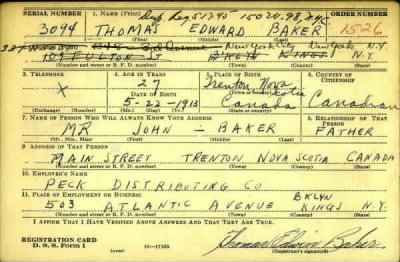 SERIAL NUMBER 1. NAME (Print) ORDER NUMBER
3094 THOMAS EDWARD BAKER 1526
(First) (Middle) (Last)
New York City New York N.Y.
107 FULTON ST BKLYN KINGS N.Y.
(Number and street or R. F. D. number) (Town) (County) (State)
3. TELEPHONE 4. AGE IN YEARS 5. PLACE OF BIRTH 6. COUNTRY OF CITIZENSHIP
X 27 Trenton Nova Scotia
DATE OF BIRTH (Town or county)
5-22-1913 Canada Canadian
(Exchange) (Number) (Mo.) (Day) (Yr.) (State or country)
7. NAME OF PERSON WHO WILL ALWAYS KNOW YOUR ADDRESS 8. RELATIONSHIP OF THAT PERSON
MR JOHN - BAKER FATHER
(Mr., Mrs., Miss) (First) (Middle) (Last)
9. ADDRESS OF THAT PERSON
MAIN STREET TRENTON NOVA SCOTIA CANADA
(Number and street or R. F. D. number) (Town) (County) (State)
10. EMPLOYER'S NAME
PECK DISTRIBUTING CO
11. PLACE OF EMPLOYMENT OR BUSINESS BKLYN
503 ATLANTIC AVENUE KINGS N.Y.
(Number and street or R. F. D. number) (Town) (County) (State)
I AFFIRM THAT I HAVE VERIFIED ABOVE ANSWERS AND THAT THEY ARE TRUE.
REGISTRATION CARD
D. S. S. Form 1 (over) 16-17105 Thomas Edwin Baker
(Registrant's signature)